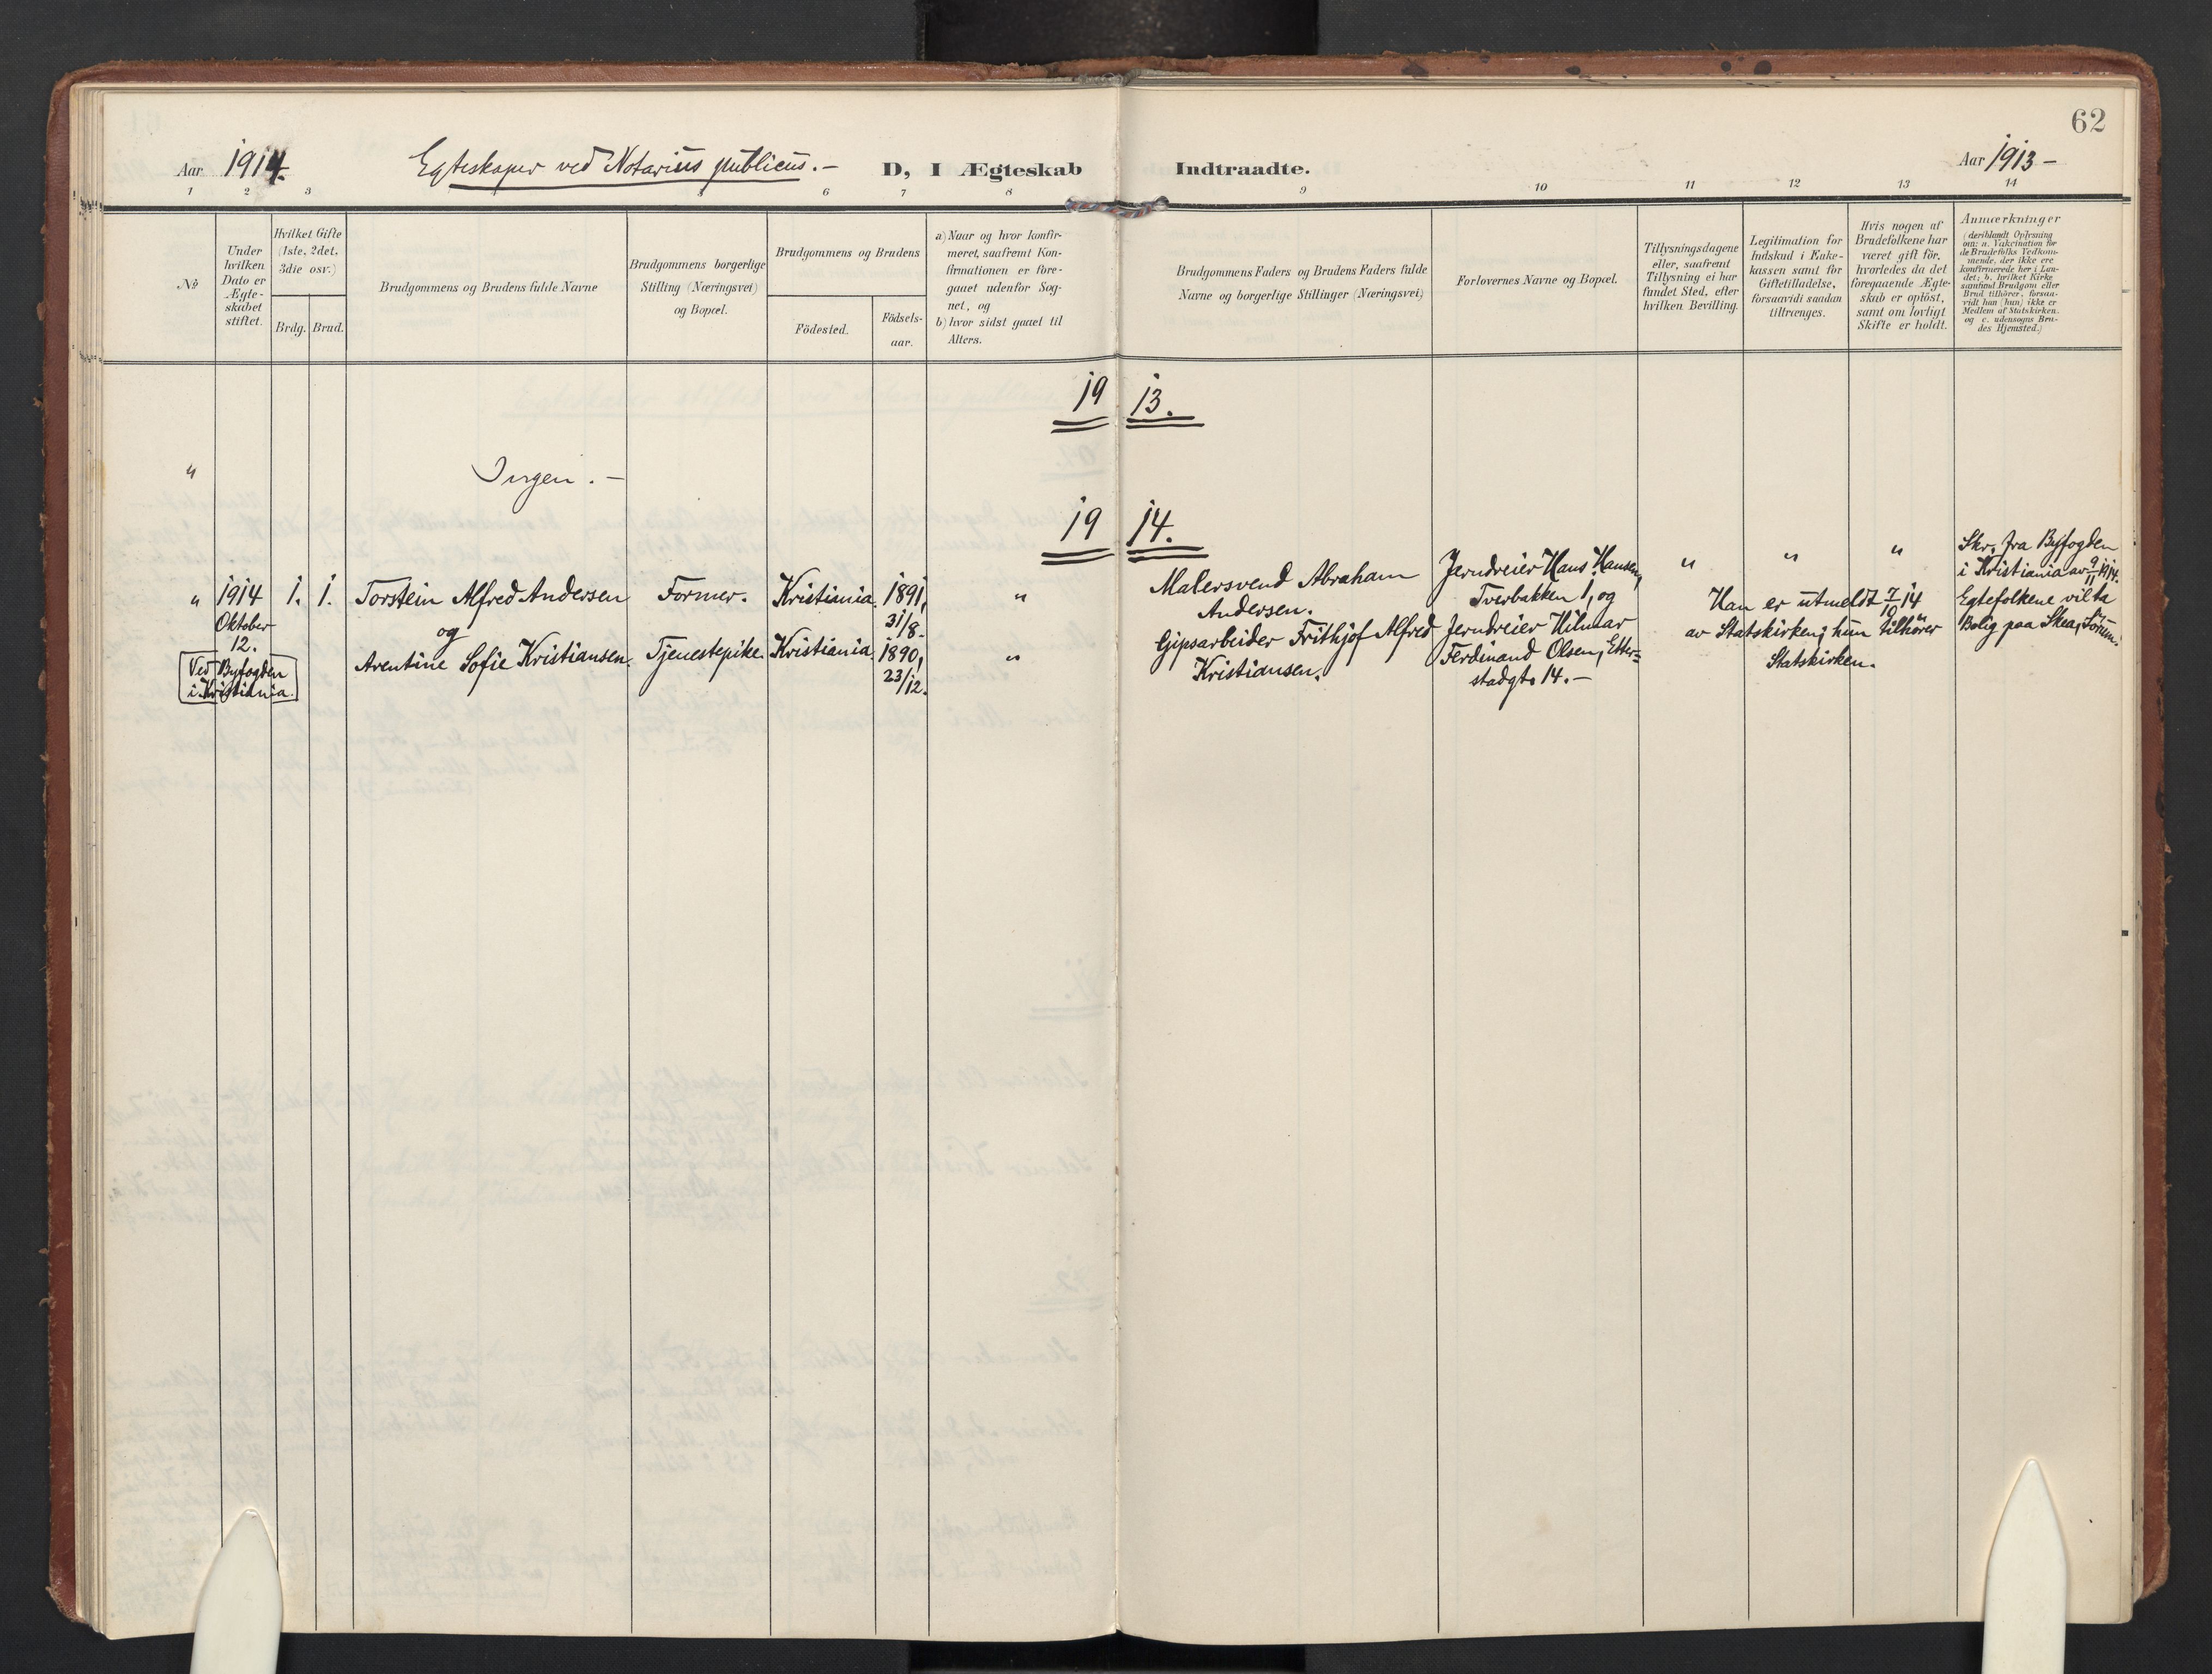 62
Aar 1914.
Egteskaper ved Notarius publicus. –
D, I Ægteskab
Indtraadte.
Aar 1913 –
1 2 3 5 6 7 8 9 10 11 12 13 14
No
Under
hvilken
Dato er
Ægte-
skabet
stiftet.
Hvilket Gifte
(1ste, 2det,
3die osv.)
Brdg. Brud.
Brudgommens og Brudens fulde Navne
Brudgommens borgerlige
Stilling (Næringsvei)
og Bopæl.
Brudgommens og Brudens
Födested.
Födsels-
aar.
a) Naar og hvor konfir-
meret, saafremt Kon-
firmationen er fore-
gaaet udenfor Sog-
net, og
b) hvor sidst gaaet til
Alters.
Brudgommens Faders og Brudens Faders fulde
Navne og borgerlige Stillinger (Næringsvei)
Forlovernes Navne og Bopæl.
Tillysningsdagene
eller, saafremt
Tillysning ei har
fundet Sted, efter
hvilken Bevilling.
Legitimation for
Indskud i Enke-
kassen samt for
Giftetilladelse,
forsaavidt saadan
tiltrænges.
Hvis nogen af
Brudefolkene har
været gift för,
hvorledes da det
foregaaende Ægte-
skab er oplöst,
samt om lovligt
Skifte er holdt.
Anmærkninger
(deriblandt Oplysning
om: a. Vakcination for
de Brudefolks Vedkom-
mende, der ikke ere
konfirmerede her i Lan-
det; b. hvilket Kirke
samfund Brudgom eller
Brud tilhører, forsaa-
vidt han (hun) ikke er
Medlem af Statskirken.
og c. udensogns Bru-
des Hjemsted.)
19 13.
" Ingen. –
19 14.
" 1914
Oktober
12.
Ved Byfogden
i Kristiania.
1. 1.
Torstein Alfred Andersen
og
Arentine Sofie Kristiansen.
Former.
Tjenestepike.
Kristiania.
Kristiania.
1891,
31/8.
1890,
23/12.
"
"
Malersvend Abraham
Andersen.
Gipsarbeider Frithjof Alfred
Kristiansen.
Jerndreier Hans Hansen,
Tverbakken 1, og
Jerndreier Hilmar
Ferdinand Olsen, Etter=
stadgt. 14. –
" " "
Han er utmeldt 7/10 14
av Statskirken; hun tilhörer
Statskirken.
Skr. fra Byfogden
i Kristiania av 9/11 1914.
Egtefolkene vil ta
Bolig paa Skea, Sörum.